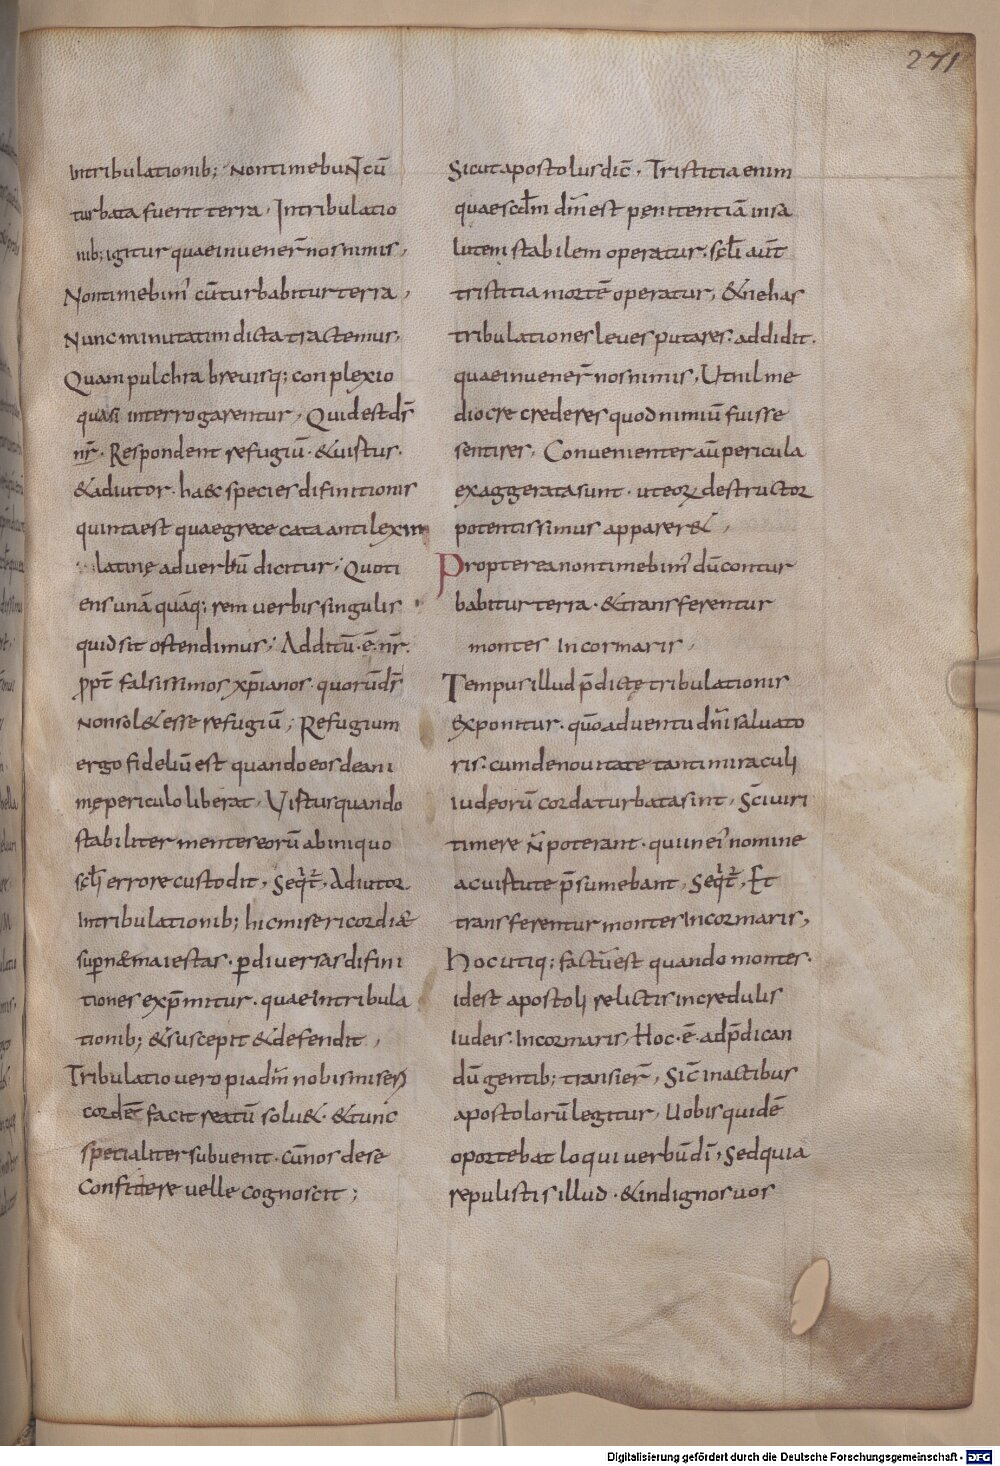 271
Intribulationib; Nontimebunt cū
turbata fuerit terra, Intribulatio
nib; igitur quaeinuener̄ nosnimis,
Nontimebim' cūturbabiturterra,
Nunc minutatim dicta tractemus,
Quam pulchra breuisq; conplexio
quasi interrogarentur, Quid est ds̄
nr̄. Respondent refugiū. &uirtus.
&adiutor. haec species difinitionis
quinta est quae grece cata antilexin
latinę aduerbū dicitur, Quoti
ens unā quāq; rem uerbis singulis
quid sit ostendimus; Additū. ē. nr̄.
ꝓpt̄ falsissimos xp̄ianos. quorū ds̄
nonsol& esse refugiū; Refugium
ergo fideliū est quando eos deani
mę periculo liberat, Uirtus quando
stabiliter mentes eorū abiniquo
scl̄i errore custodit, Seqt̄, Adiutor
Intribulationib; hic misericordiae
supnae maiestas. ꝑdiuersas difini
tiones exp̄mitur. quae intribula
tionib; &suscepit &defendit,
Tribulatio uero piadn̄i nobis miseri
cordē facit reatū solu&. &tunc
specialiter subuenit. cū nos de se
confidere uelle cognoscit;
Sicut apostolus dic̄. Tristitia enim
quae scd̄m dm̄ est penitentiā insa
lutem stabilem operatur, scl̄i aūt
tristitia mortē operatur, &nehas
tribulationes leues putares. addidit.
quae inuener̄ nos nimis, Ut nil me
diocre crederes quod nimiū fuisse
sentires, Conuenienter aū pericula
exaggerata sunt. ut eoꝝ destructor
potentissimus apparer&,
Propterea non timebim' dū contur
babitur terra. &transferentur
montes in cor maris,
Tempus illud p̄dictę tribulationis
exponitur. quō aduentu dn̄i saluato
ris. cum de nouitate tanti miraculi
iudeorū corda turbata sint, Sc̄i uiri
timere n̄ poterant. qui in ei' nomine
ac uirtute p̄sumebant, Seqt̄, Et
transferentur montes In cor maris,
Hoc utiq; factū est quando montes.
id est apostoli relictis incredulis
iudeis. In cor maris, Hoc. ē. ad p̄dican
dū gentib; transier̄, Sic̄ in actibus
apostolorū legitur, Uobis quidē
oportebat loqui uerbū dī, Sed quia
repulistis illud. &indignos uos
Digitalisierung gefördert durch die Deutsche Forschungsgemeinschaft - DFG